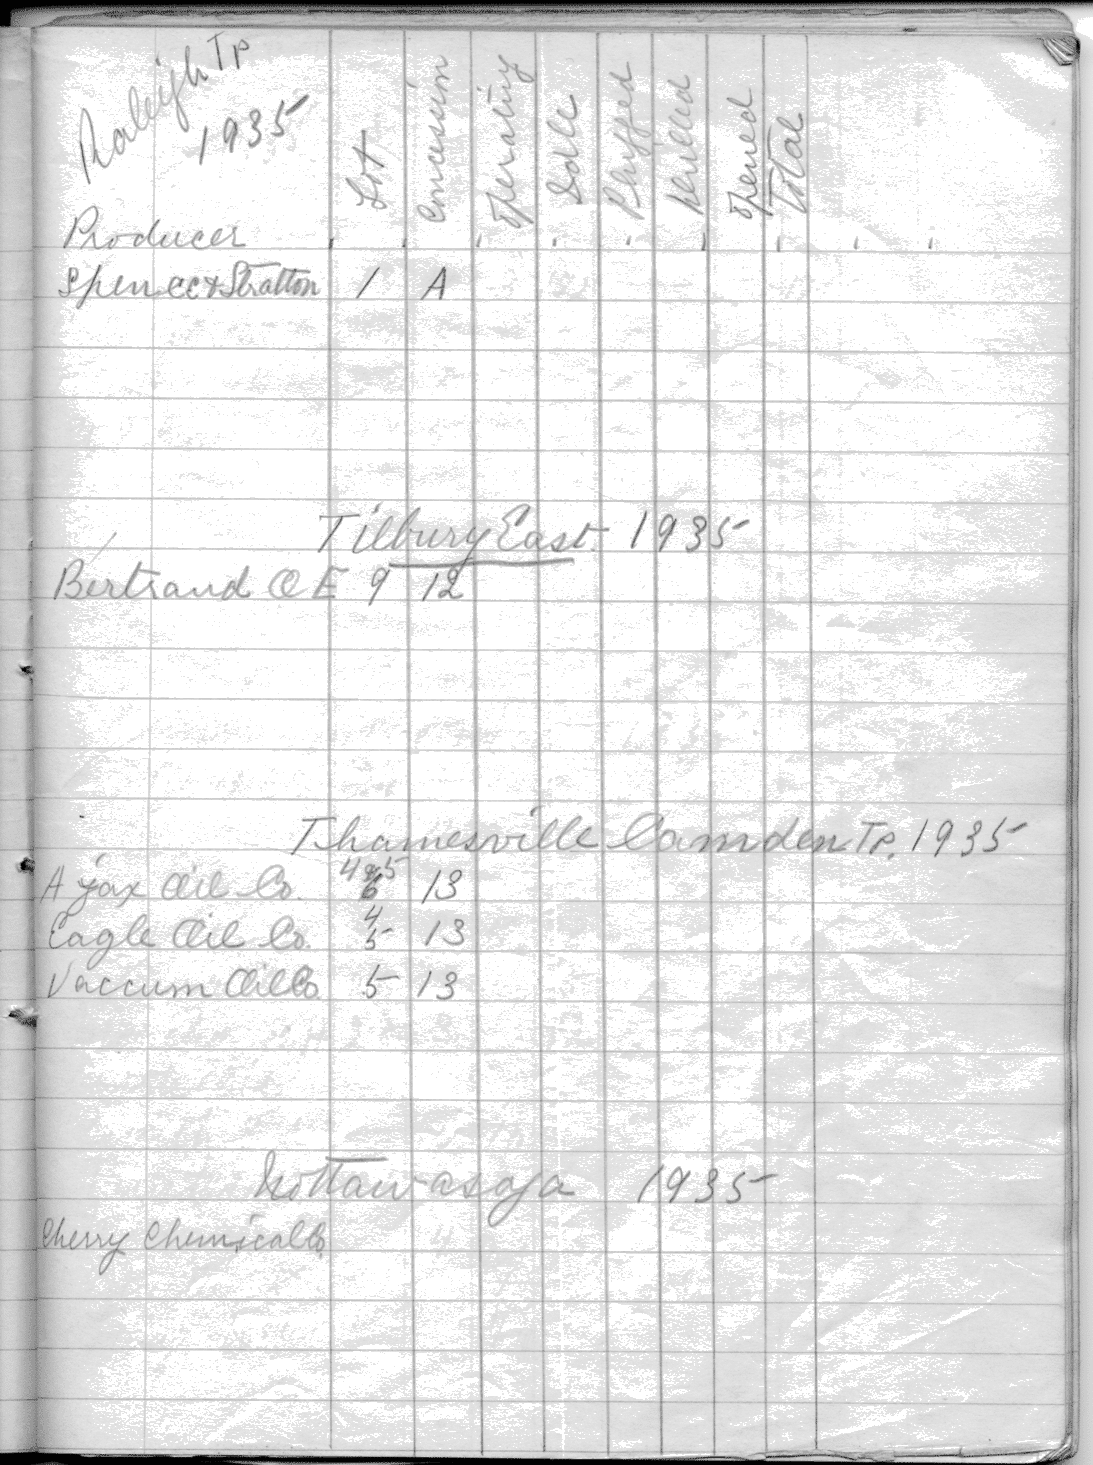 Raleigh Tp
1935
Producer Lot Concession Operating Idle Plugged Drilled Opened Total
Spence & Stratton 1 A
Tilbury East. 1935
Bertrand O E 9 12
Thamesville Camden Tp. 1935
Ajax Oil Co. 4 & 5 6 13
Eagle Oil Co. 4 5 13
Vaccum Oil Co 5 13
Nottawasaga 1935
Cherry Chemical Co